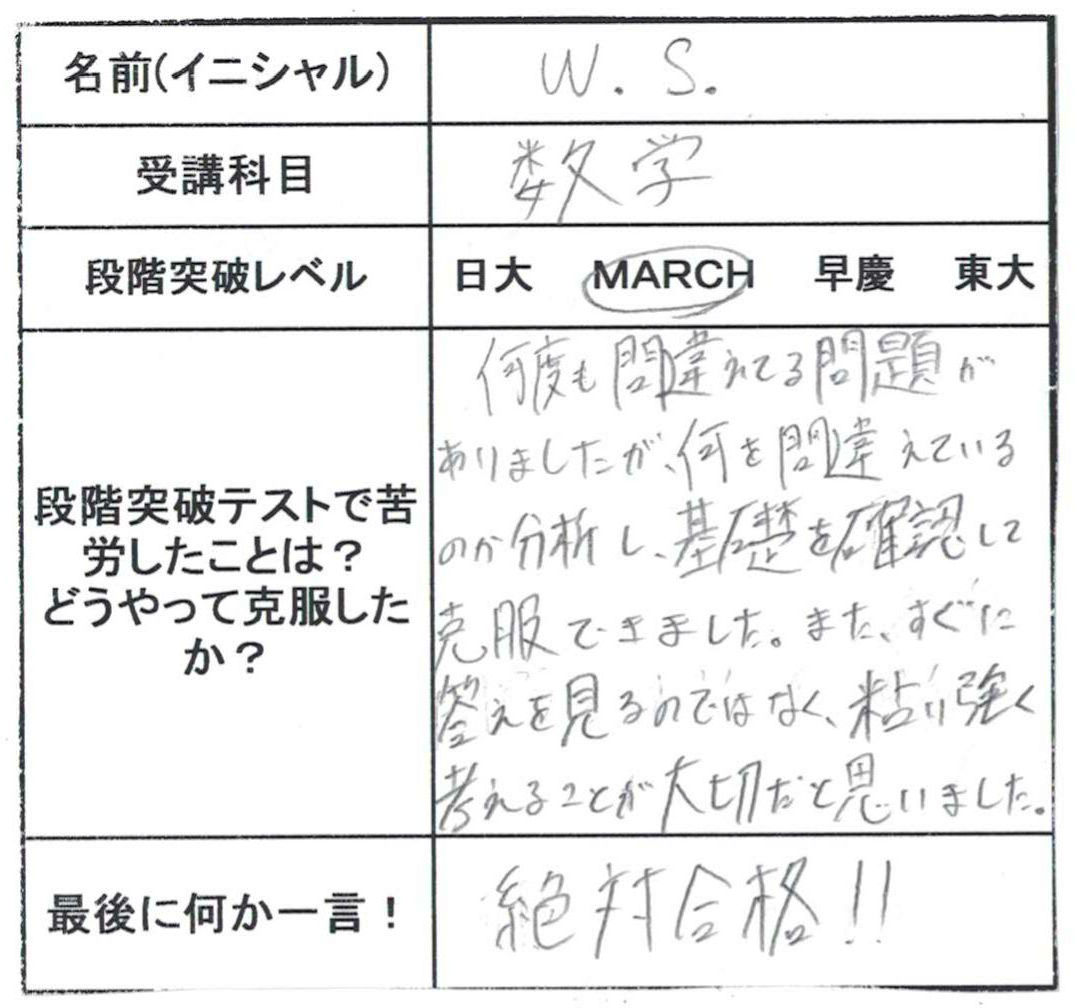 名前(イニシャル)
W. S.
受講科目
数学
段階突破レベル
日大 MARCH 早慶 東大
段階突破テストで苦
労したことは？
どうやって克服した
か？
何度も間違えてる問題が
ありましたが、何を間違えている
のか分析し、基礎を確認して
克服できました。また、すぐに
答えを見るのではなく、粘り強く
考えることが大切だと思いました。
最後に何か一言！
絶対合格!!